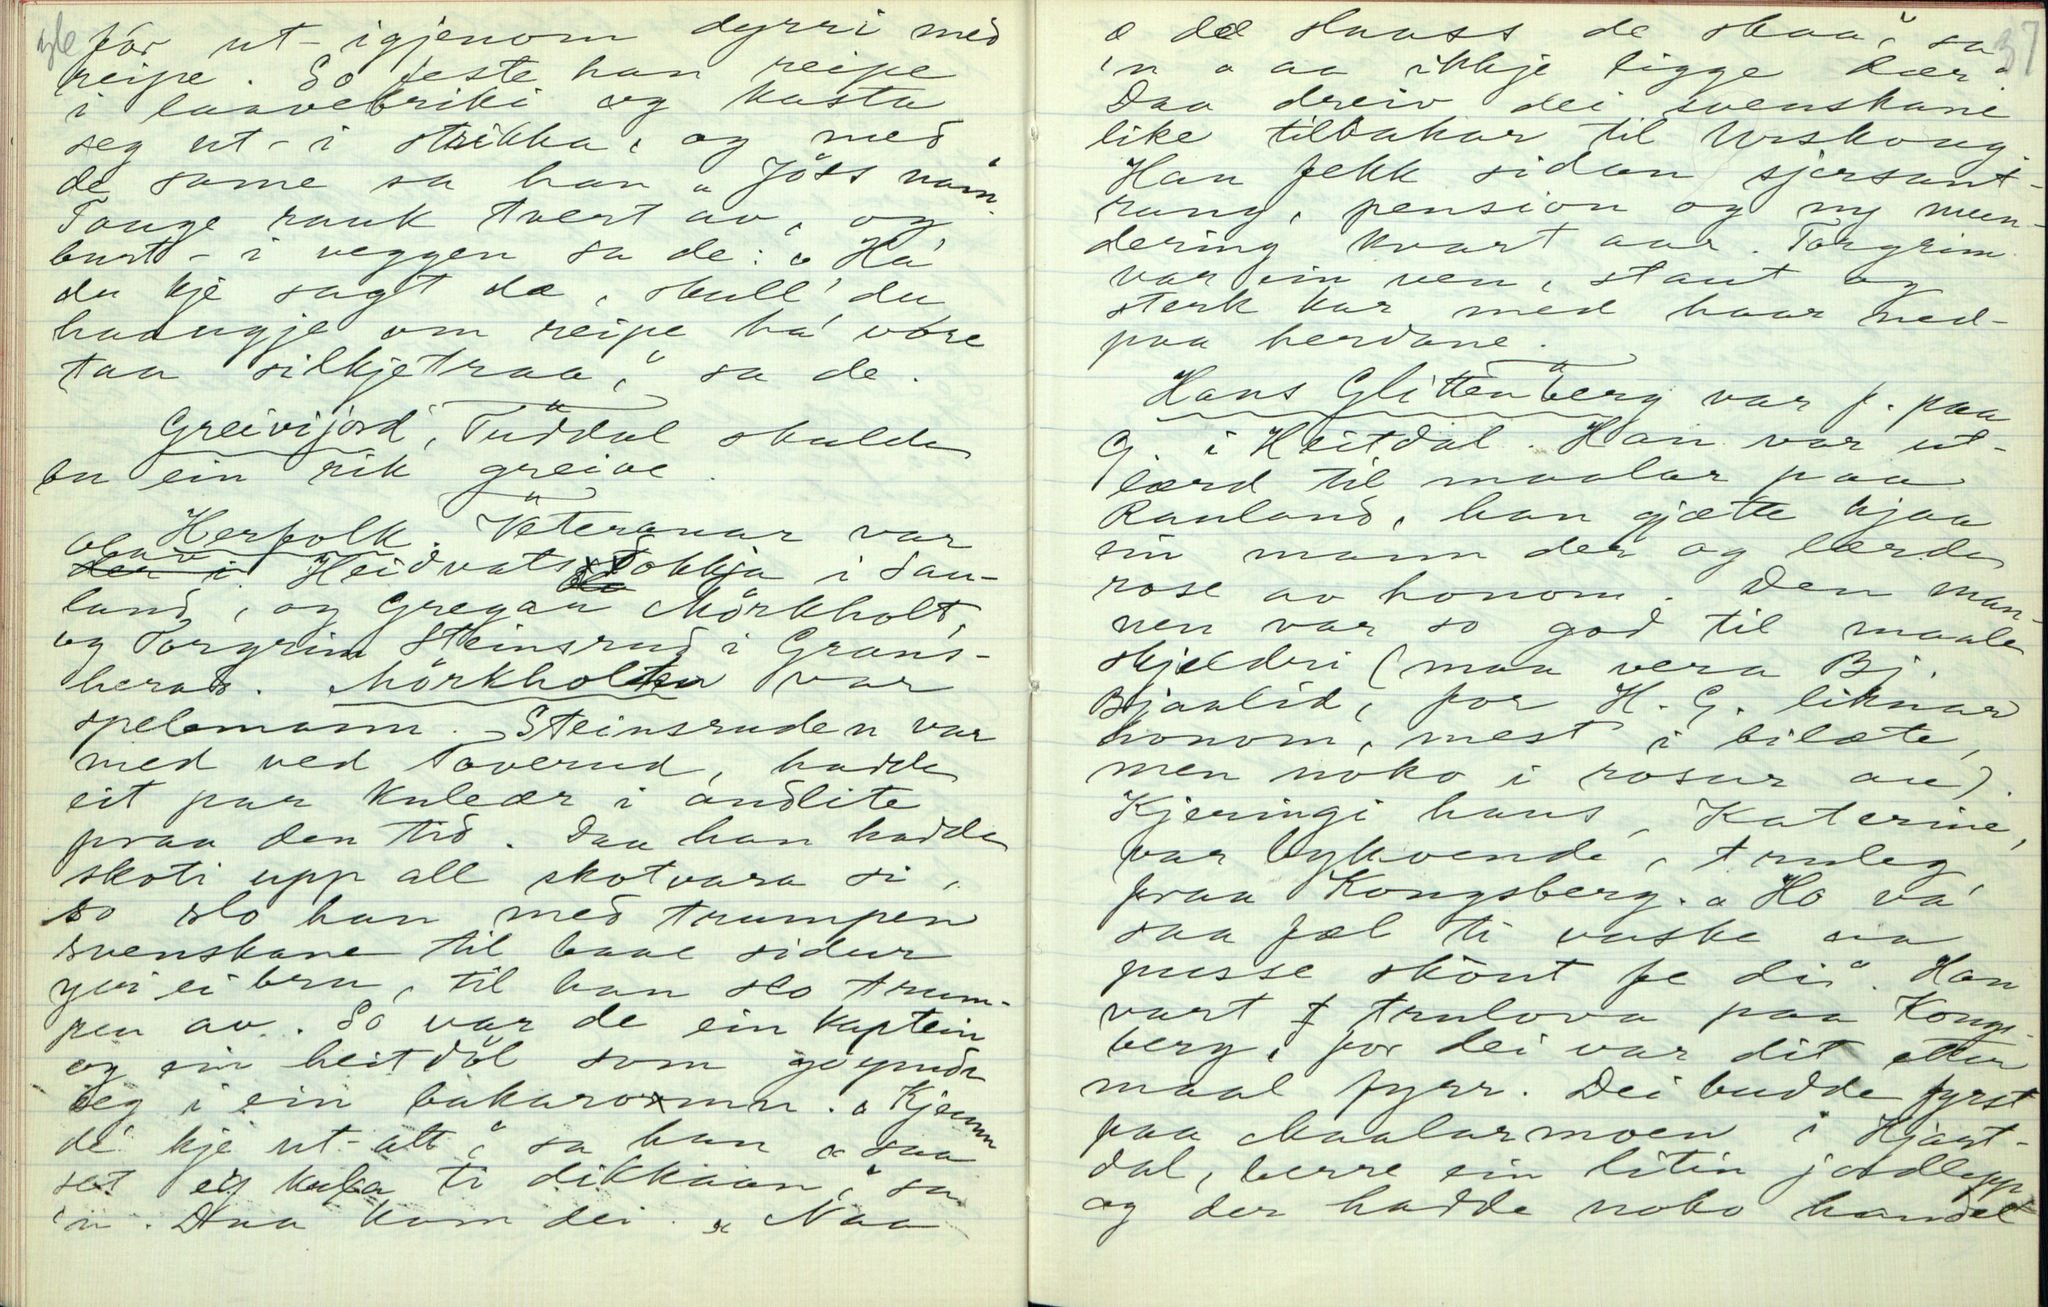 36
fór ut-igjenom dyrri med
reipe. So feste han reipe
i laavebriki og kasta
seg ut-i strikka, og med
de same sa han "Jöss namn".
Tauge rauk tvert av, og
burt-i veggen sa de: "Ha'
du kje sagt da, skull' du
haangje om reipe ha' vore
taa silkjetraa," sa de.
Greivijord, Tuddal skulde
bu ein rik greive.
Herfolk. Veteranar var
Olav Heidvatsdokkja i Sau-
land, og Gregar Mörkholt,
og Torgrim Steinsrud i Grans-
herad. Mörkholten var
spelemann. Steinsruden var
med ved Toverud, hadde
eit par kuleær i andlite
fraa den tid. Daa han hadde
skoti upp all skotvara si,
so slo han med trumpen
svenskane til baae sidur
yvi ei bru, til han slo trum-
pen av. So var de ein kaptein
og ein heitdöl som göymde
seg i ein bakaromn. "Kjemm
de' kje ut-att," sa han "saa
set eg kula ti dikkaan," sa
'n. Daa kom dei. "Naa
37
æ dæ slaass de skaa," sa
'n "aa ikkje ligge dær".
Daa dreiv dei svenskane
like tilbakar til Urskoug.
Han fekk sidan sjersant-
rang, pension og ny mun-
dering kvart aar. Torgrim
var ein ven, staut og
sterk kar med haar ned-
paa herdane.
Hans Glittenberg var f. paa
G. i Heitdal. Han var ut-
lærd til maalar paa
Rauland, han gjætte hjaa
ein mann der og lærde
rose av honom. Den man-
nen var so god til maale
skjælderi (maa vera Bj.
Bjaalid, for H. G. liknar
honom, mest i bilæte,
men noko i rosur au).
Kjeringi hans, Katerine,
var bykvende, truleg
fraa Kongsberg. "Ho va'
saa fæl ti vaske aa
pusse skönt fe di". Han
vart trulova paa Kongs-
berg, for dei var dit etter
maal fyrr. Dei budde fyrst
paa Maalarmoen i Hjart-
dal, berre ein litin jordlepp
og der hadde noko handel